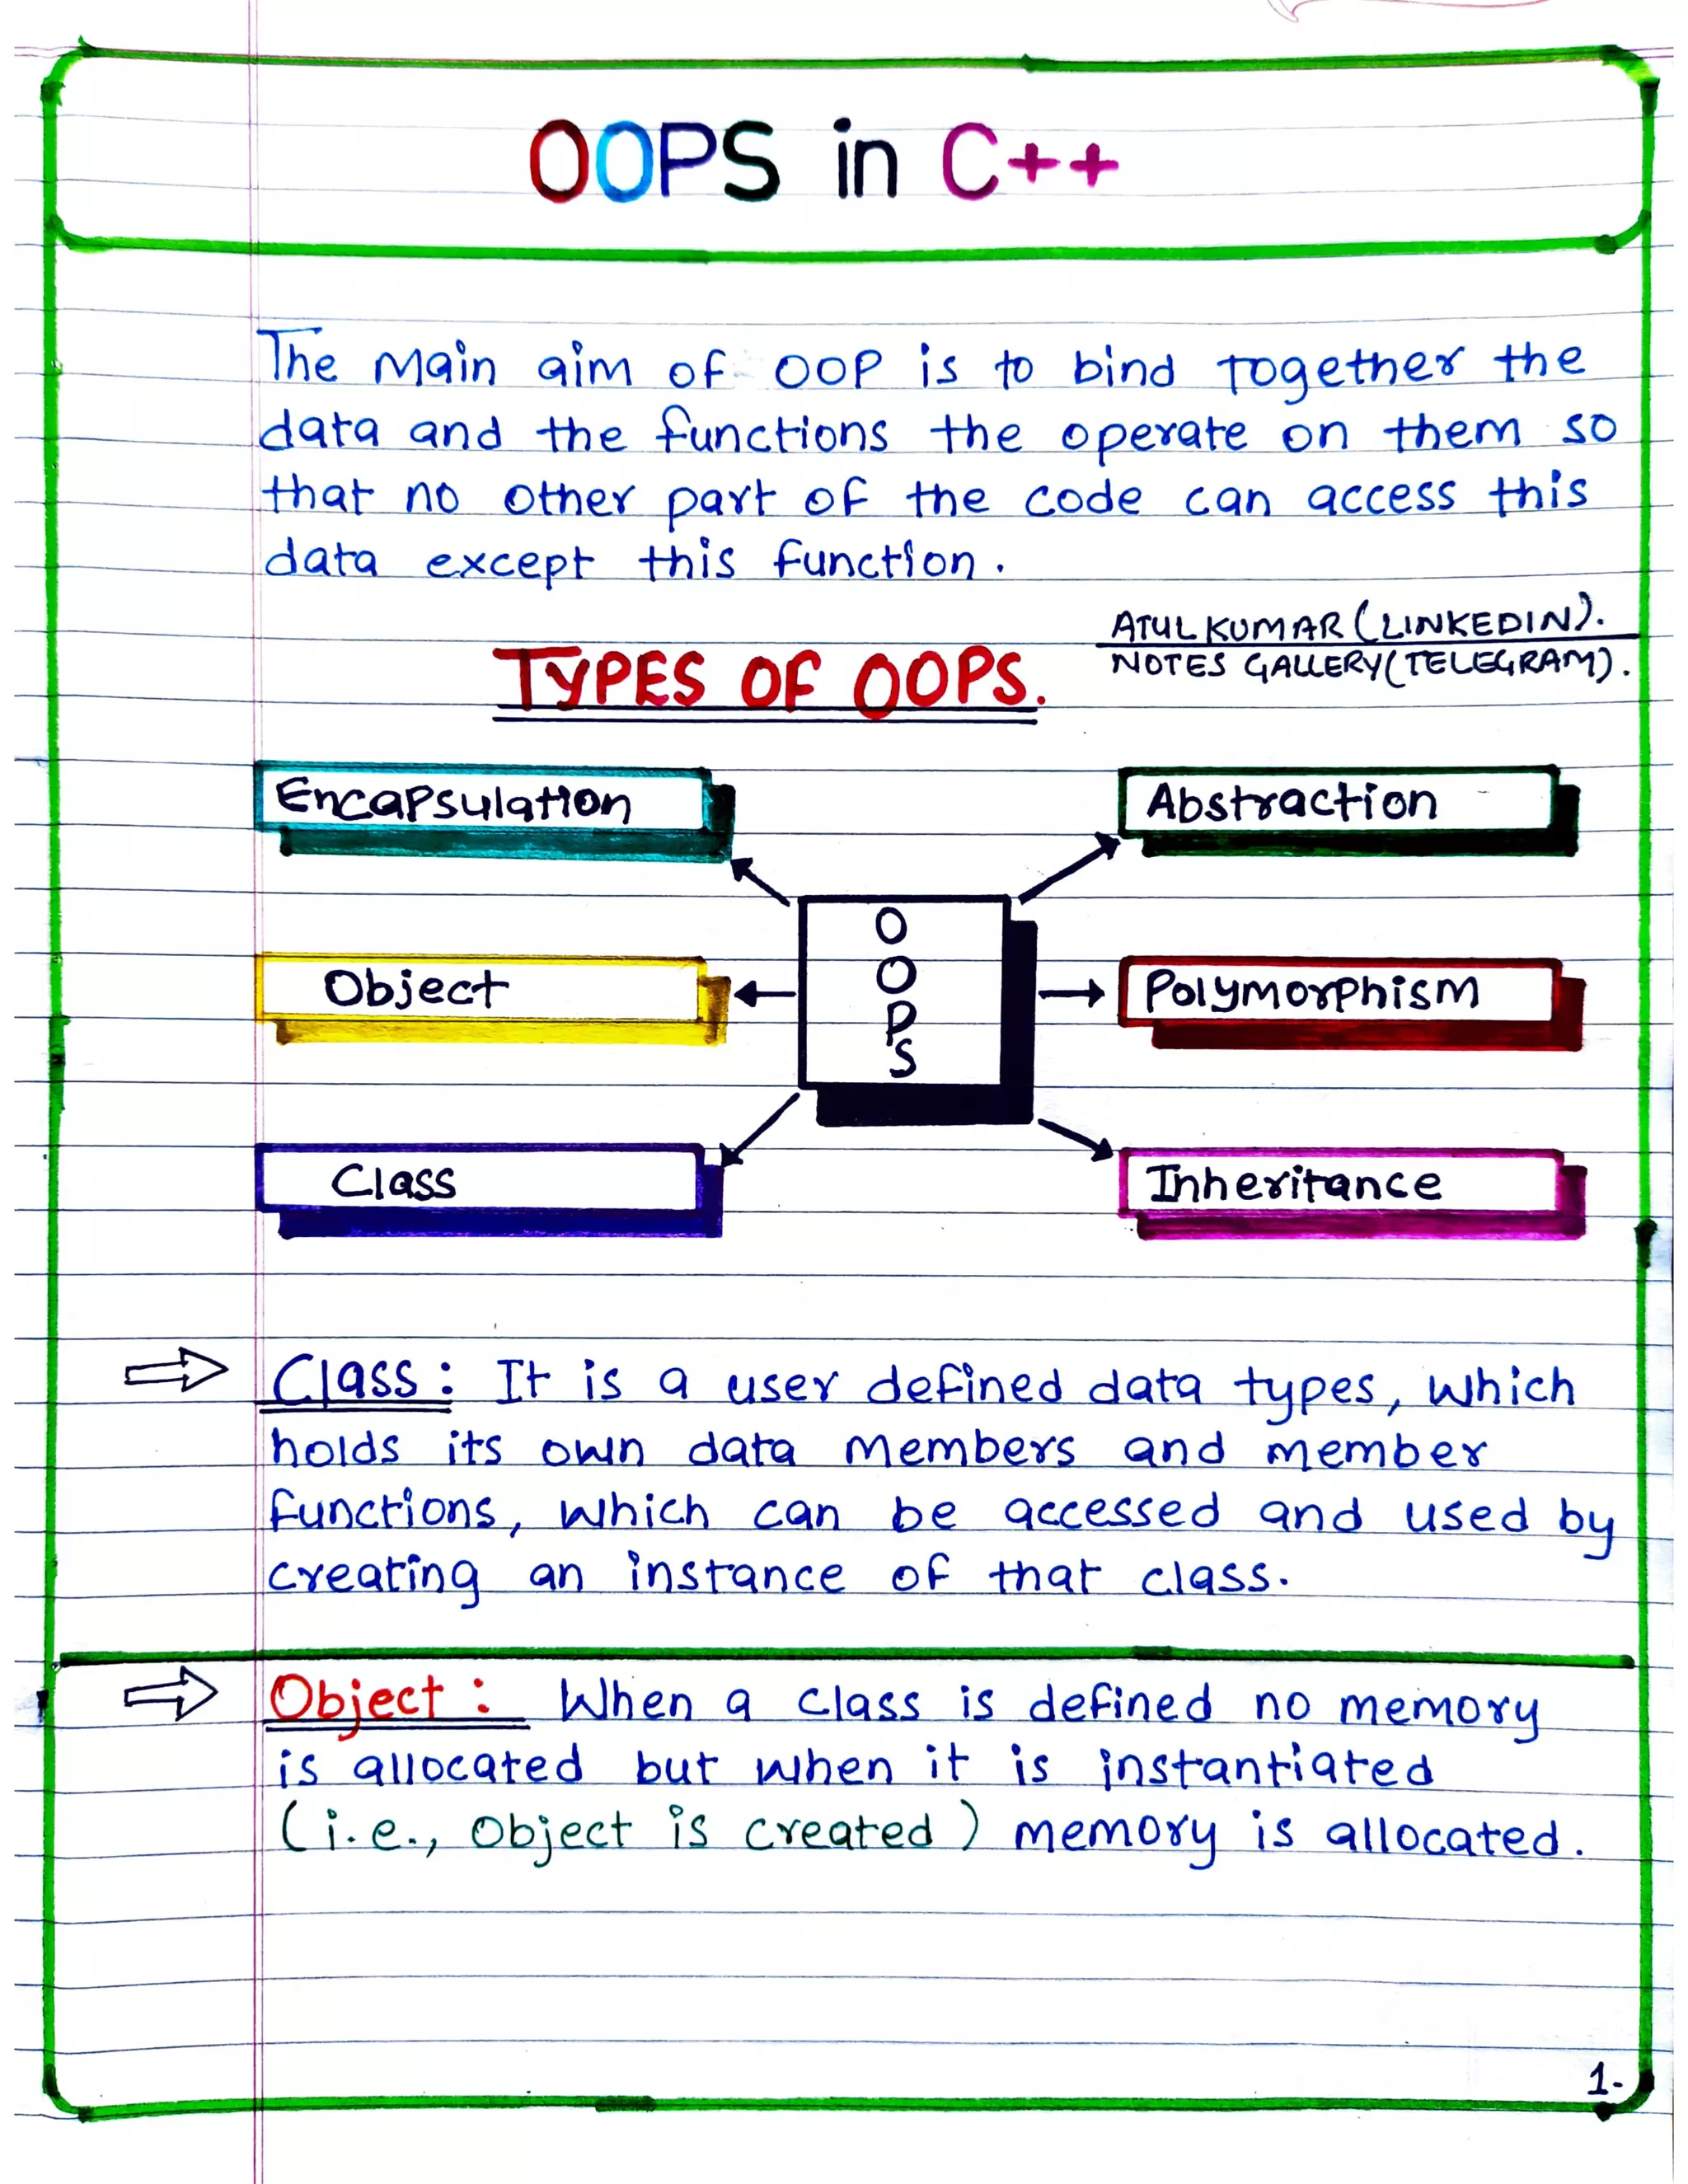 OOPS in C++
The Main aim of OOP is to bind Together the
data and the functions the operate on them so
that no other part of the code can access this
data except this function.
ATUL KUMAR (LINKEDIN).
NOTES GALLERY(TELEGRAM).
TYPES OF OOPS.
Encapsulation
Abstraction
OOPS
Object
Polymorphism
Class
Inheritance
Class: It is a user defined data types, which
holds its own data members and member
functions, which can be accessed and used by
creating an instance of that class.
Object: When a class is defined no memory
is allocated but when it is instantiated
(i.e., object is created) memory is allocated.
1.